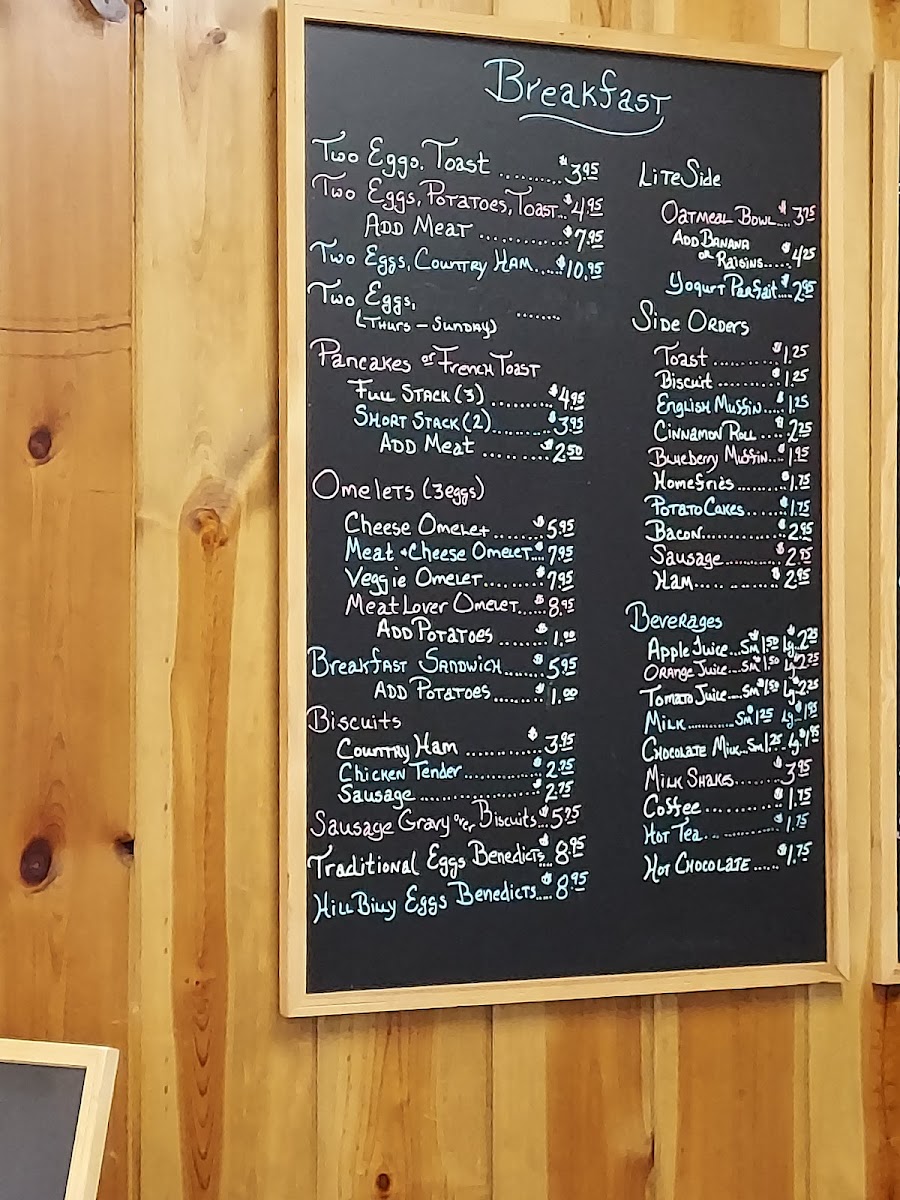 Breakfast
Two Eggs, Toast .......... $3.95
Two Eggs, Potatoes, Toast... $4.95
Add Meat ............. $7.95
Two Eggs, Country Ham...... $10.95
Two Eggs, .......
(Thurs - Sunday)
Pancakes or French Toast
Full Stack (3) .......... $4.95
Short Stack (2)......... $3.95
Add Meat ......... $2.50
Omelets (3eggs)
Cheese Omelet ....... $5.95
Meat + Cheese Omelet... $7.95
Veggie Omelet........ $7.95
Meat Lover Omelet..... $8.95
Add Potatoes ....... $1.00
Breakfast Sandwich...... $5.95
Add Potatoes....... $1.00
Biscuits
Country Ham ............ $3.95
Chicken Tender............. $2.75
Sausage .................... $2.75
Sausage Gravy over Biscuits... $5.75
Traditional Eggs Benedicts.. $8.95
HillBilly Eggs Benedicts.... $8.95
LiteSide
Oatmeal Bowl.... $3.75
Add Banana
or Raisins..... $4.25
Yogurt Parfait.... $2.95
Side Orders
Toast .......... $1.25
Biscuit .......... $1.25
English Muffin.... $1.25
Cinnamon Roll .... $2.25
Blueberry Muffin... $1.95
Homefries......... $1.75
Potato Cakes...... $1.75
Bacon............. $2.95
Sausage........... $2.95
Ham.............. $2.95
Beverages
Apple Juice... Sm $1.50 Lg $2.25
Orange Juice... Sm $1.50 Lg $2.25
Tomato Juice.... Sm $1.50 Lg $2.25
Milk........... Sm $1.25 Lg $1.95
Chocolate Milk.. Sm $1.25 Lg $1.95
Milk Shakes........ $3.95
Coffee ........... $1.75
Hot Tea.............. $1.75
Hot Chocolate ...... $1.75